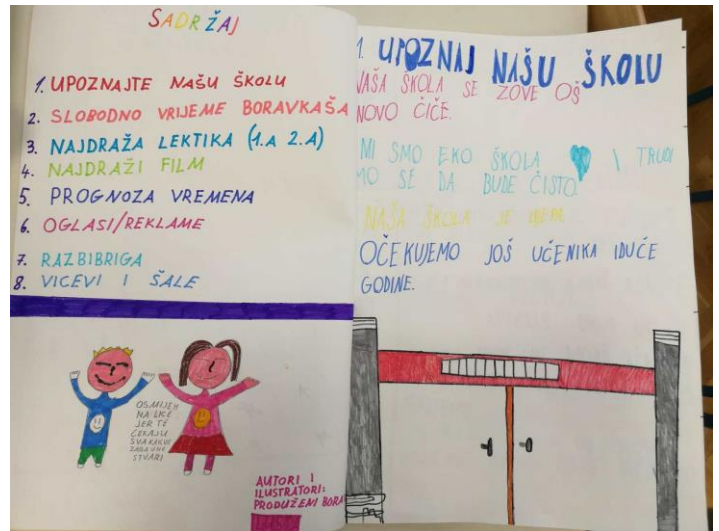 SADRŽAJ
1. UPOZNAJTE NAŠU ŠKOLU
2. SLOBODNO VRIJEME BORAVKAŠA
3. NAJDRAŽA LEKTIKA (1.A 2.A)
4. NAJDRAŽI FILM
5. PROGNOZA VREMENA
6. OGLASI/REKLAME
7. RAZBIBRIGA
8. VICEVI I ŠALE
OSMIJEH
NA LICE
JER TE
ČEKAJU
SVAKAKVE
ZABAVNE
STVARI
AUTORI I
ILUSTRATORI:
PRODUŽENI BORA
1. UPOZNAJ NAŠU ŠKOLU
NAŠA ŠKOLA SE ZOVE OŠ
NOVO ČIČE.
MI SMO EKO ŠKOLA I TRUDI
MO SE DA BUDE ČISTO.
NAŠA ŠKOLA JE
OČEKUJEMO JOŠ UČENIKA IDUĆE
GODINE.